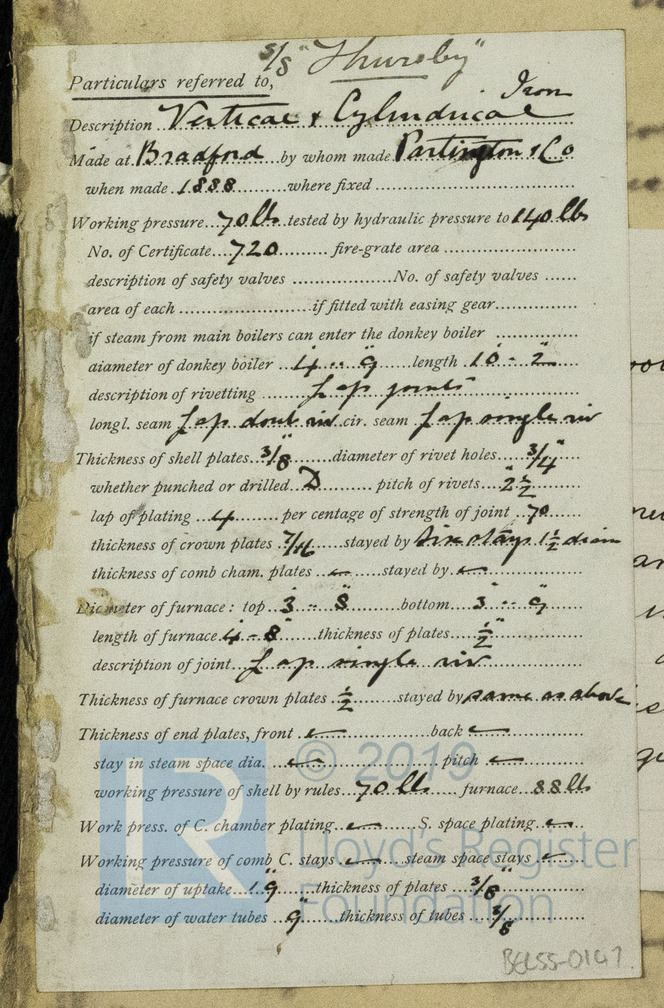 S/S "Thursby"
Particulars referred to,
Iron
Description Vertical & Cylindrical
Made at Bradford by whom made Partington & Co
when made 1888 where fixed
Working pressure 70 lbs tested by hydraulic pressure to 140 lbs
No. of Certificate 720 fire-grate area
description of safety valves No. of safety valves
area of each if fitted with easing gear
if steam from main boilers can enter the donkey boiler
diameter of donkey boiler 4 .. 9" length 10 - 2"
description of rivetting Lap joints
longl. seam Lap doub riv. cir. seam Lap single riv
Thickness of shell plates 3/8" diameter of rivet holes 3/4"
whether punched or drilled D pitch of rivets 2 1/2"
lap of plating 4 per centage of strength of joint 70
thickness of crown plates 7/16 stayed by Six stays 1 1/2 diam
thickness of comb cham. plates stayed by
Diameter of furnace: top 3 .. 8" bottom 3 .. 9"
length of furnace 4 - 8" thickness of plates 1/2"
description of joint Lap single riv
Thickness of furnace crown plates 1/2" stayed by same as above
Thickness of end plates, front back
stay in steam space dia. pitch
working pressure of shell by rules 70 lbs furnace 88 lbs
Work press. of C. chamber plating S. space plating
Working pressure of comb C. stays steam space stays
diameter of uptake 1.9" thickness of plates 3/8"
diameter of water tubes 9" thickness of tubes 3/8"
© 2019
Lloyd's Register
Foundation
BELSS-0147